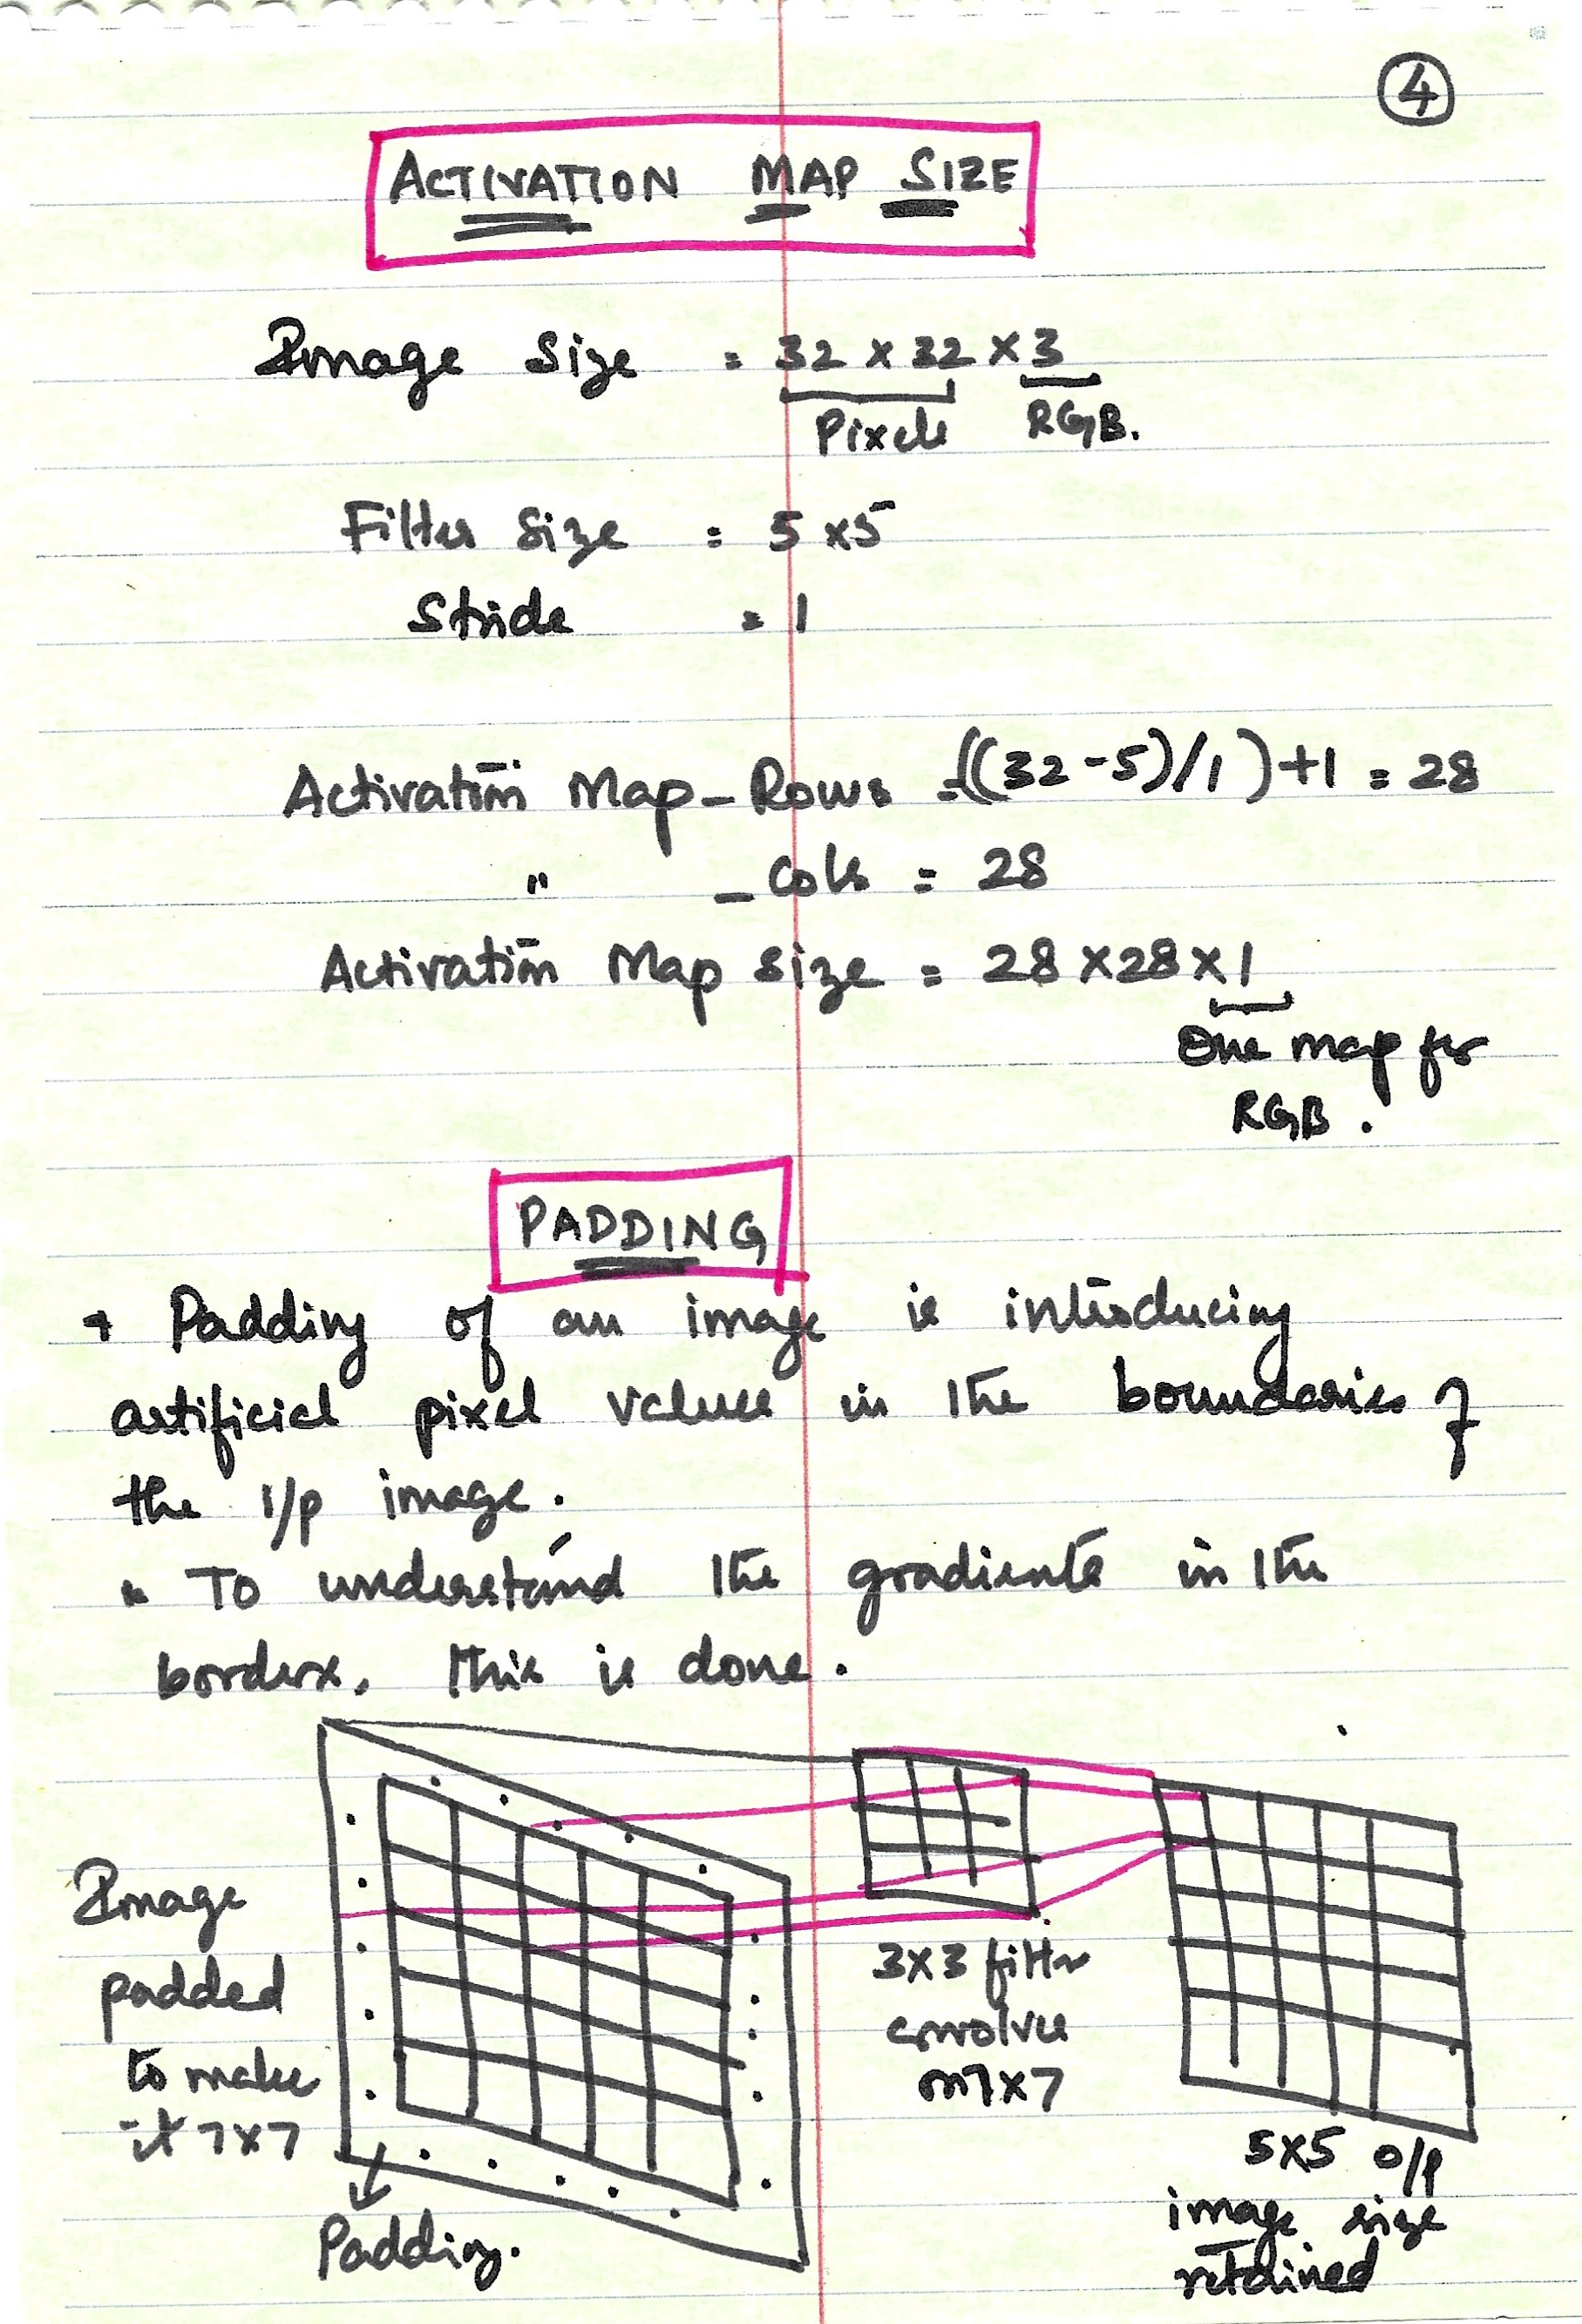 4
ACTIVATION MAP SIZE
Image Size = 32 x 32 x 3
Pixels RGB.
Filter Size = 5 x5
Stride = 1
Activation Map-Rows =((32-5)/1)+1 = 28
" - Cols = 28
Activation Map size = 28 x28 x 1
One map for
RGB.
PADDING
* Padding of an image is introducing
artificial pixel values in the boundaries of
the i/p image.
* To understand the gradients in the
borders, this is done.
Image
padded
to make
it 7x7
Padding.
3x3 filter
convolves
on 7x7
5x5 o/p
image size
retained